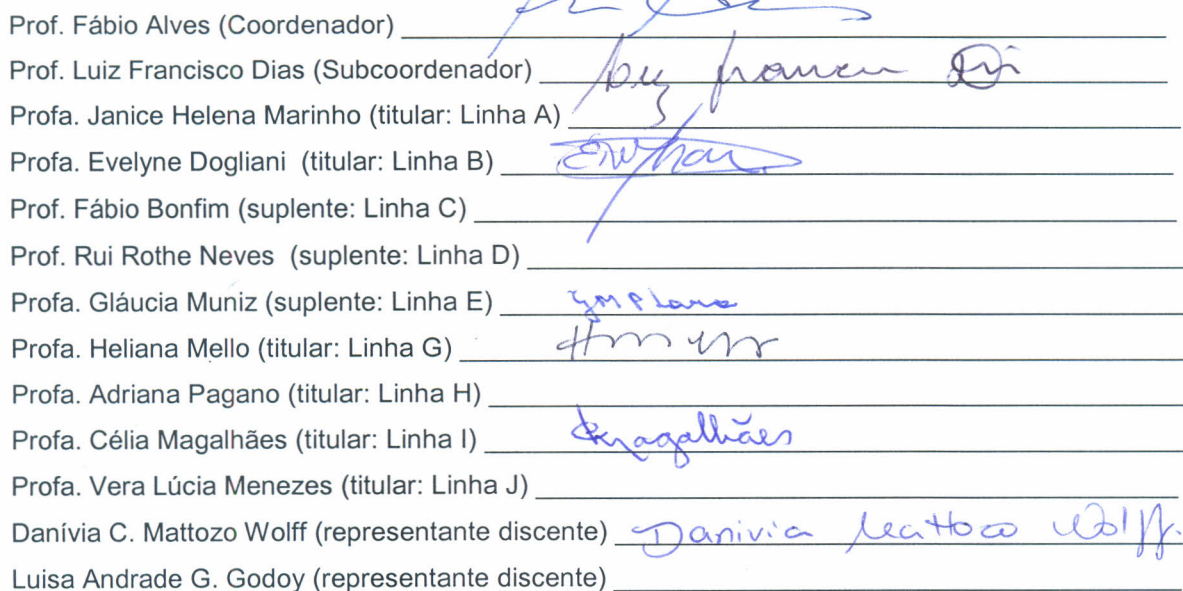 Prof. Fábio Alves (Coordenador)
Prof. Luiz Francisco Dias (Subcoordenador) Luiz Francisco Dias
Profa. Janice Helena Marinho (titular: Linha A)
Profa. Evelyne Dogliani (titular: Linha B)
Prof. Fábio Bonfim (suplente: Linha C)
Prof. Rui Rothe Neves (suplente: Linha D)
Profa. Gláucia Muniz (suplente: Linha E) GMPLara
Profa. Heliana Mello (titular: Linha G)
Profa. Adriana Pagano (titular: Linha H)
Profa. Célia Magalhães (titular: Linha I) Magalhães
Profa. Vera Lúcia Menezes (titular: Linha J)
Danívia C. Mattozo Wolff (representante discente) Danivia Mattozo Wolff.
Luisa Andrade G. Godoy (representante discente)